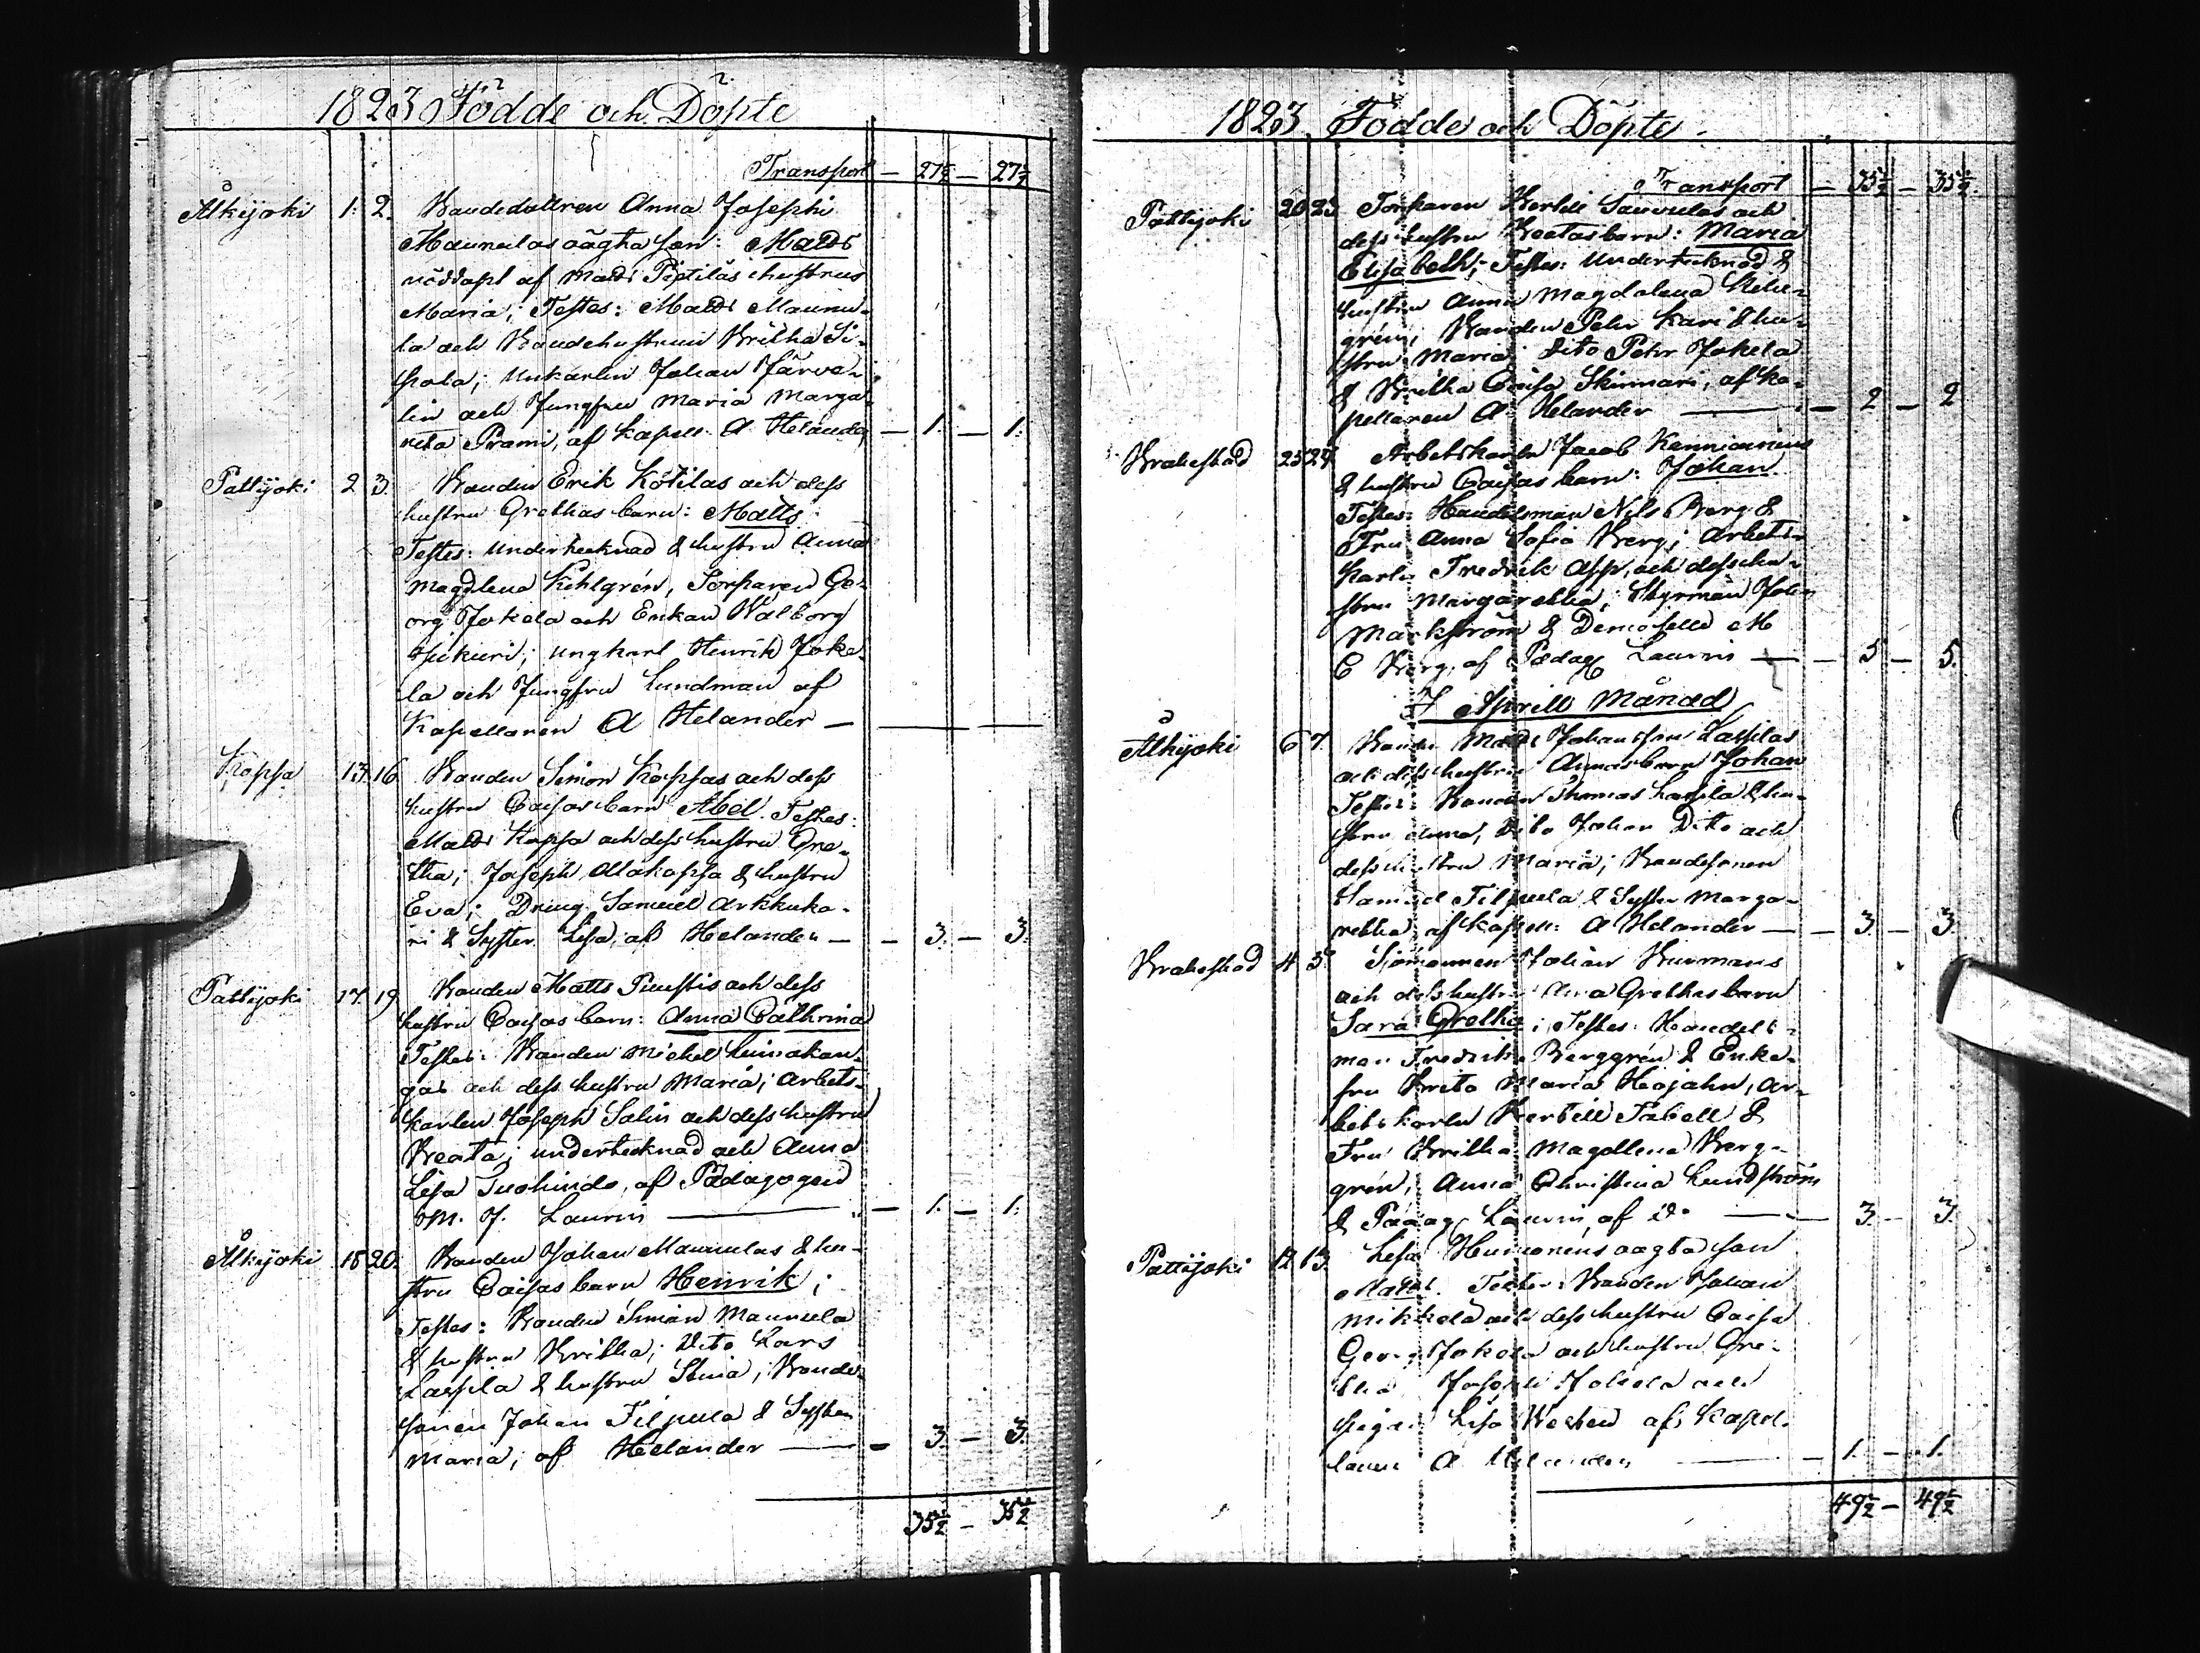 1823 Födde och Döpte
Transport — 27½ — 27½
Alkijoki 1. 2. Bondedottren Anna Josephi
Maunulas oägta son: Matts
nöddöpt af Matts Pietiläs hustru
Maria; Testes: Matts Maunu-
la och Bondehustrun Britha Si-
pola; Unkarlen Johan Järve-
lin och Jungfru Maria Marga-
reta Prami, af Kapell. A Helander — 1. — 1.
Pattijoki 2 3. Bonden Erik Kötilas och dess
hustru Grethas barn: Matts
Testes: Undertecknad & hustru Anna
Magdlena Kihlgrén, Torparen Ge-
org Jokela och Enkan Walborg
ungkarl Henrik Joke-
la och Jungfru Lundman af
Kapellanen A Helander —
Kopsa 13. 16 Bonden Simon Kopsas och dess
hustru Caisas barn Abel. Testes:
Matts Kopsa och dess hustru Gre-
tha; Joseph Alakopsa & hustru
Eva; Dreng Samuel Arkkuka-
ri & Syster Lisa, af Helander — — 3. — 3.
Pattijoki 17. 19 Bonden Matts Punstis och dess
hustru Caisas barn: Anna Cathrina
Testes: Bonden Michel Linnakan-
gas och dess hustru Maria; Arbets-
karlen Joseph Salin och dess hustru
Beata; undertecknad och Anna
Lisa Tuohindo, af Pædagogen
M. J. Laurin — — 1. — 1.
Alkijoki 18 20. Bonden Johan Maunulas & hu-
stru Caisas barn Henrik;
Testes: Bonden Simon Maunula
& hustru Britha; Dito Lars
Laspila & hustru Stina; Bonde-
sonen Johan Filpula & Syster
Maria, af Helander — — 3. — 3.
35½ — 35½
1823. Födde och Döpte
Transport — 35½ — 35½
Pattijoki 20 23 Torparen Bertil Sauvulas och
dess hustru Beatas barn: Maria
Elisabeth; Testes: Undertecknad &
hustru Anna Magdalena Kihl-
grén; Bonden Pehr Kari & hu-
stru Maria; Dito Pehr Jokela
& Britha Caisa Skinnari, af Ka-
pellanen A Helander — — 2 — 2
Brahestad 25 27 Arbetskarlen Jacob Kenniainens
& hustru Caisas barn: Johan.
Testes: Handelsman Nils Berg &
Fru Anna Sofia Berg; Arbets-
karlen Fredrik Asp, och dess hu-
stru Margaretha; Styrman Joh.
Markström & Demoiselle M
C Berg, af Pædag Laurin — — 5 — 5.
I Aprill Månad
Alkijoki 6 7. Bonden Matts Johansson Laspilas
och dess hustru Annas barn Johan
Testes: Bonden Thomas Laspila & hu-
stru Anna, Dito Johan Dito och
dess hustru Maria; Bondesonen
Samuel Filpula & Syster Marga-
retha, af Kapell: A Helander — — 3. — 3.
Brahestad 4 5. Sjömannen Johan Burmans
och dess hustru Ana Grethas barn
Sara Gretha; Testes: Handels-
man Fredrik Berggrén & Enke-
fru Brita Maria Hojahn, Ar-
betskarlen Bertill Tabell &
Fru Britha Magdlena Berg-
grén, Anna Christina Lundström
& Pædag Laurin, af do — — 3. — 3.
Pattijoki 12 13. Lisa oägta son
Matts. Testes: Bonden Johan
Mikkola och dess hustru Caisa
Georg Jokela och hustru Gre-
tha Joseph Jokela och
pigan Lisa af Kapel-
lanen A Helander — — 1. — 1.
49½ — 49½